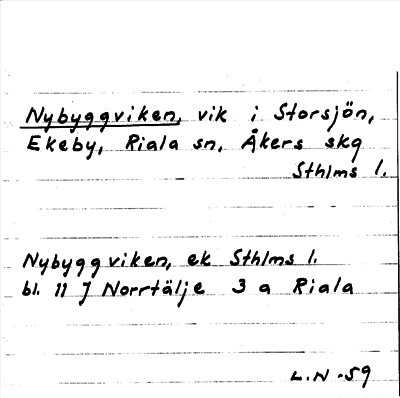 Nybyggviken, vik i Storsjön,
Ekeby, Riala sn, Åkers skg
Sthlms l.
Nybyggviken, ek Sthlms l.
bl. 11 J Norrtälje 3 a Riala
L.N -59